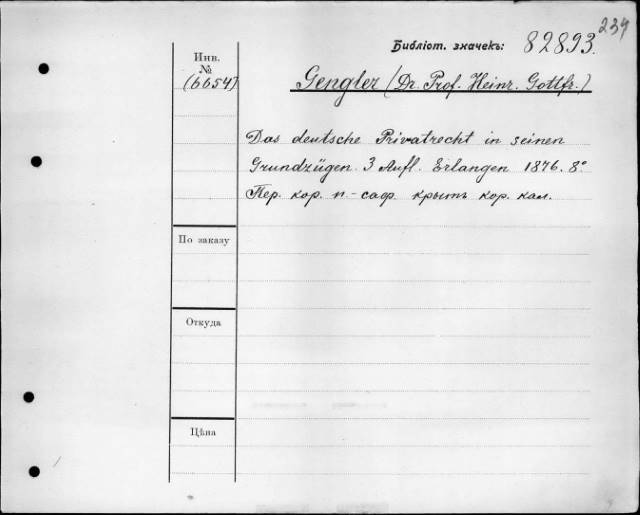 239
Библіот. значекъ: 82893.
Инв.
№
(6654)
Gengler (Dr. Prof. Heinr. Gottfr.)
Das deutsche Privatrecht in seinen
Grundzügen. 3 Aufl. Erlangen 1876. 8°
Пер. кор. п.-саф. крыт. кор. кал.
По заказу
Откуда
Цѣна